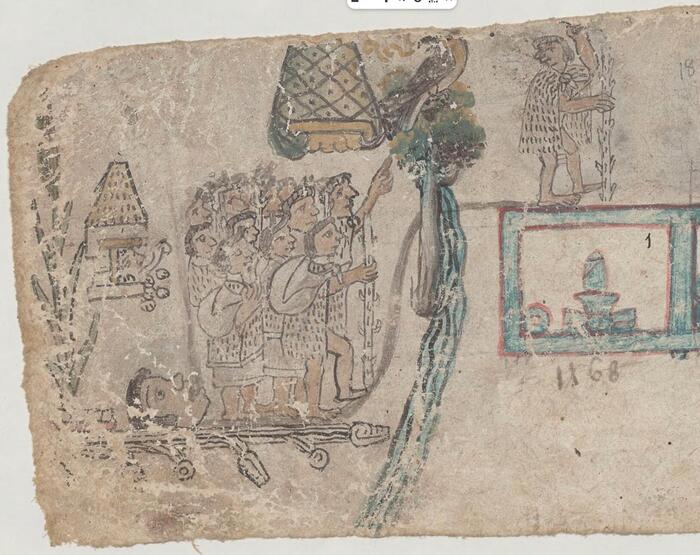 18
1
1168